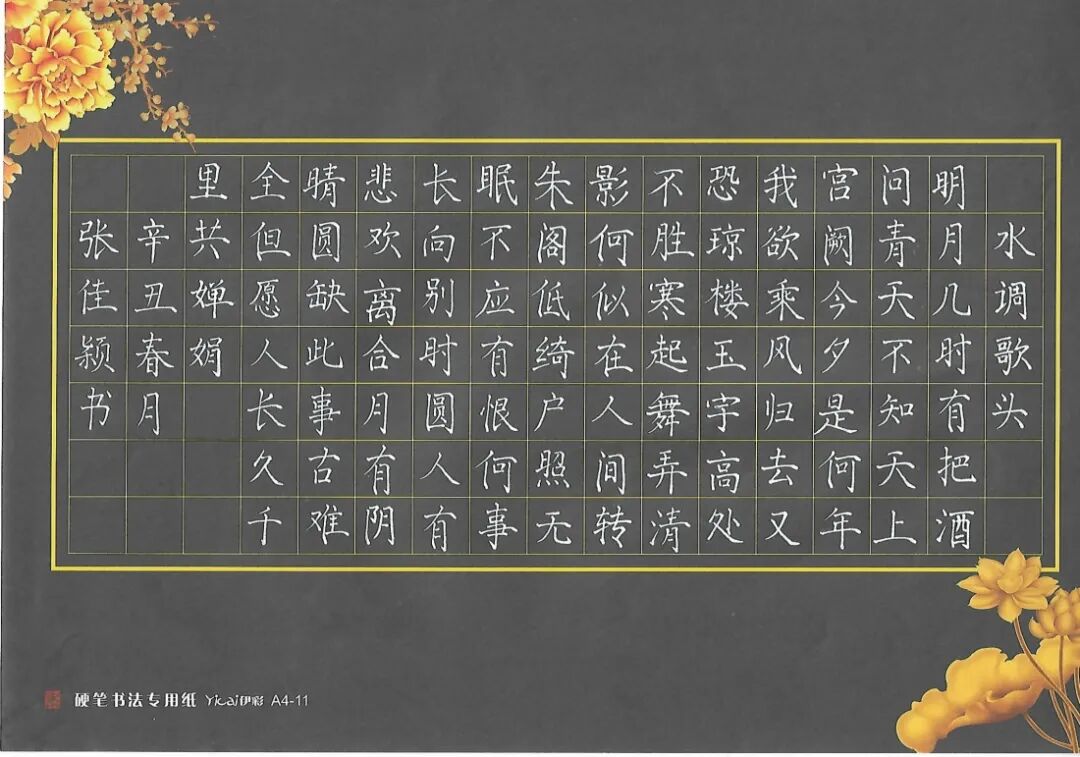 水调歌头
明月几时有把酒
问青天不知天上
宫阙今夕是何年
我欲乘风归去又
恐琼楼玉宇高处
不胜寒起舞弄清
影何似在人间转
朱阁低绮户照无
眠不应有恨何事
长向别时圆人有
悲欢离合月有阴
晴圆缺此事古难
全但愿人长久千
里共婵娟
辛丑春月
张佳颖书
硬笔书法专用纸 Yicai伊彩 A4-11